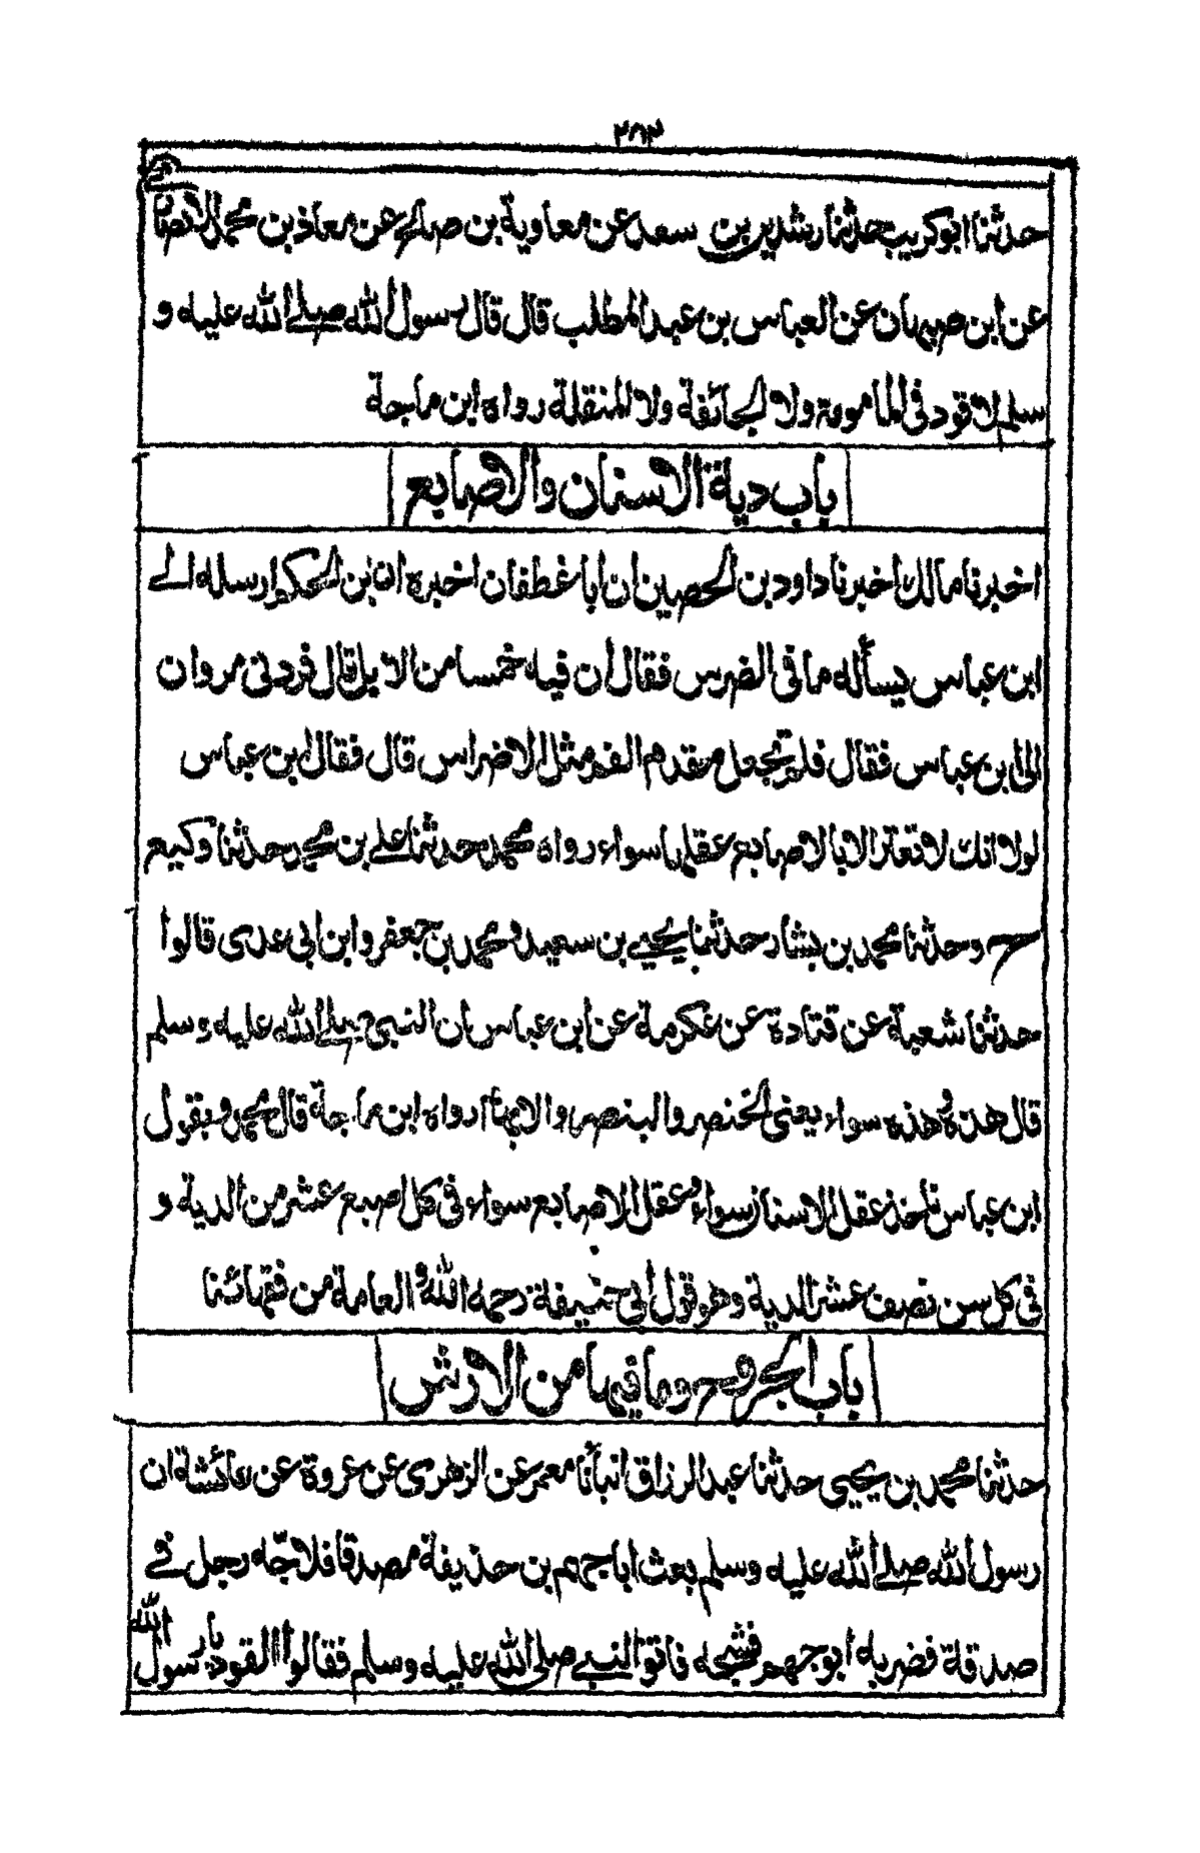 ٢٨٣
حدثنا ابوكريب حدثنا رشدين بن سعد عن معاوية بن صالح عن معاذ بن محمد الانصاري
عن ابن صهبان عن العباس بن عبد المطلب قال قال رسول الله صلى الله عليه و
سلم لا قود فى المامومة ولا الجائفة ولا المنقلة رواه ابن ماجة
باب دية الاسنان والاصابع
اخبرنا مالك اخبرنا داود بن الحصين ان ابا غطفان اخبره ان ابن الحكم ارسله الى
ابن عباس يسأله ما فى الضرس فقال ان فيه خمسا من الابل قال فردنى مروان
الى ابن عباس فقال فلم تجعل مقدم الفم مثل الاضراس قال فقال ابن عباس
لولا انك لا تعتبر الا بالاصابع عقلها سواء رواه محمد حدثنا على بن محمد حدثنا وكيع
ح وحدثنا محمد بن بشار حدثنا يحيى بن سعيد ومحمد بن جعفر وابن ابى عدى قالوا
حدثنا شعبة عن قتادة عن عكرمة عن ابن عباس ان النبى صلى الله عليه وسلم
قال هذه وهذه سواء يعنى الخنصر والبنصر والابهام رواه ابن ماجة قال محمد وبقول
ابن عباس نأخذ عقل الاسنان سواء وعقل الاصابع سواء فى كل اصبع عشر من الدية و
فى كل سن نصف عشر الدية وهو قول ابى حنيفة رحمه الله والعامة من فقهائنا
باب الجروح وما فيها من الارش
حدثنا محمد بن يحيى حدثنا عبد الرزاق انبأنا معمر عن الزهرى عن عروة عن عائشة ان
رسول الله صلى الله عليه وسلم بعث ابا جهم بن حذيفة مصدقا فلاجّه رجل فى
صدقة فضربه ابو جهم فشجه فاتوا النبى صلى الله عليه وسلم فقالوا القود يا رسول الله